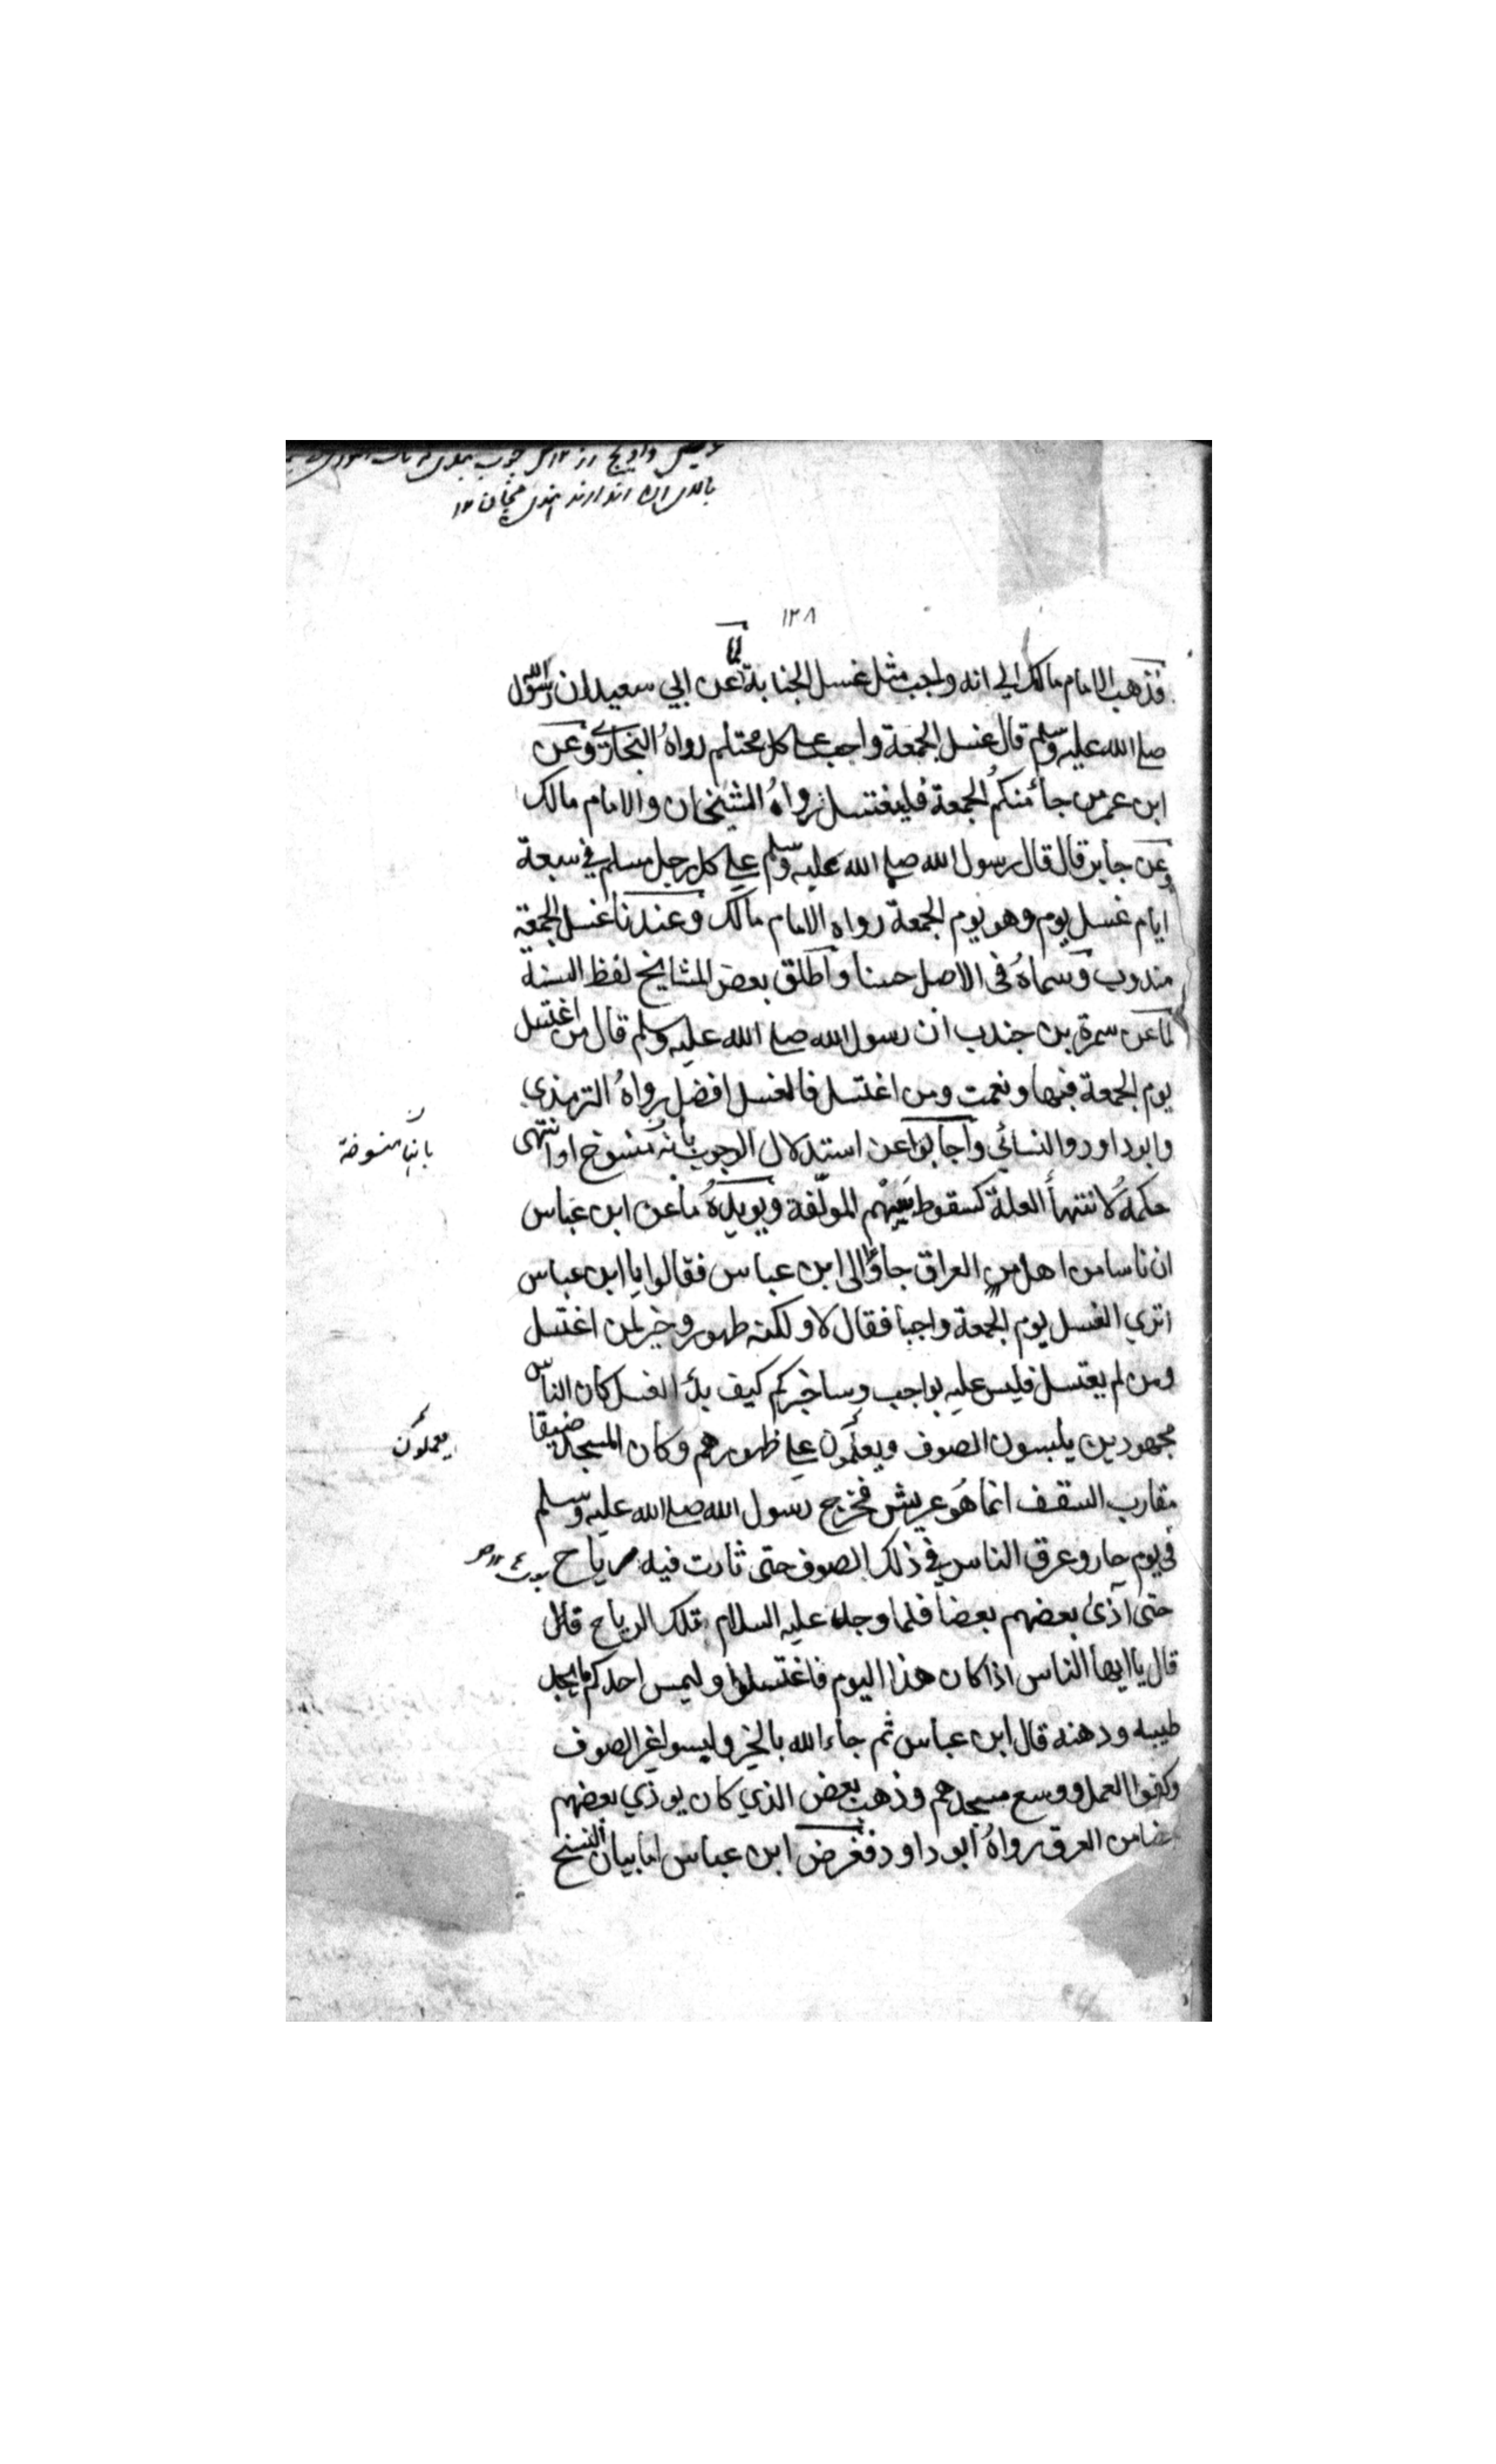 بالای ان اندازند
١٢٨
لما
فذهب الامام مالك الي انه واجب مثل غسل الجنابة عن ابي سعيد ان رسول الله
صلى الله عليه وسلم قال غسل الجمعة واجب على كل محتلم رواه البخاري وعن
ابن عمر من جاء منكم الجمعة فليغتسل رواه الشيخان والامام مالك
وعن جابر قال قال رسول الله صلى الله عليه وسلم على كل رجل مسلم في سبعة
ايام غسل يوم وهو يوم الجمعة رواه الامام مالك وعندنا غسل الجمعة
مندوب وسماه في الاصل حسنا واطلق بعض المشايخ لفظ السنة
لما عن سمرة بن جندب ان رسول الله صلى الله عليه وسلم قال من اغتسل
يوم الجمعة فبها ونعمت ومن اغتسل فالغسل افضل رواه الترمذي
وابوداود والنسائي واجابوا عن استدلال الوجوب بانه منسوخ او انتهى
بانها منسوخة
حكمه لانتهاء العلة كسقوط سهم المولفة ويويده ما عن ابن عباس
ان ناسا من اهل من العراق جاؤا الى ابن عباس فقالوا يا ابن عباس
اتري الغسل يوم الجمعة واجبا فقال لا ولكنه طهور وخير لمن اغتسل
ومن لم يغتسل فليس عليه بواجب وساخبركم كيف بدء الغسل كان الناس
مجهودين يلبسون الصوف ويعلمون على ظهورهم وكان المسجد ضيقا
يعملون
مقارب السقف انما هو عريش فخرج رسول الله صلى الله عليه وسلم
في يوم حار وعرق الناس في ذلك الصوف حتى ثارت فيه رياح
حتى آذى بعضهم بعضا فلما وجد عليه السلام تلك الرياح قال
قال يا ايها الناس اذا كان هذا اليوم فاغتسلوا وليمس احدكم ما يجد
طيبه ودهنه قال ابن عباس ثم جاء الله بالخير وليسوا غير الصوف
وكفوا العمل ووسع مسجدهم وذهب بعض الذي كان يوذي بعضهم
بعضا من العرق رواه ابو داود فغرض ابن عباس اما بيان النسخ